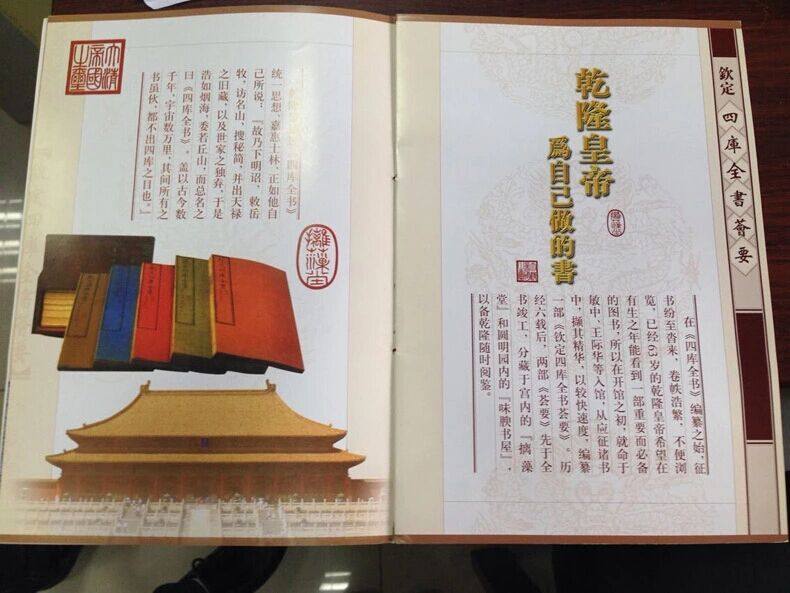 钦定
四庫全書薈要
乾隆皇帝
爲自己做的書
在《四库全书》编纂之始，征
书纷至沓来，卷帙浩繁，不便浏
览，已经63岁的乾隆皇帝希望在
有生之年能看到一部重要而必备
的图书，所以在开馆之初，就命于
敏中、王际华等入馆，从应征诸书
中，撷其精华，以较快速度，编纂
一部《钦定四库全书荟要》。历
经六载后，两部《荟要》先于全
书竣工，分藏于宫内的『摛藻
堂』和圆明园内的『味腴书屋』，
以备乾隆随时阅鉴。
四库全书》
统一思想，嘉惠士林，正如他自
己所说：『故乃下明诏，敕岳
牧，访名山，搜秘简，并出天禄
之旧藏，以及世家之独弆，于是
浩如烟海，委若丘山，而总名之
曰《四库全书》。盖以古今数
千年，宇宙数万里，其间所有之
书虽伙，都不出四库之目也。』
大清
帝國
之璽
摛藻堂